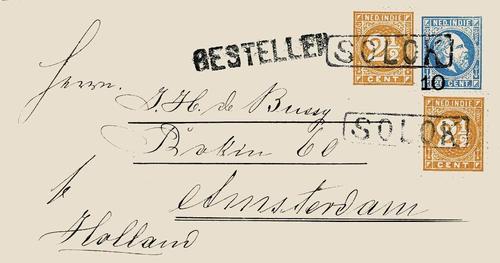 BESTELLEN
SOLOK
NED. INDIE
2½
CENT
NED. INDIE
CENT
10
NED. INDIE
2½
CENT
SOLOK
Herrn
J. H. de Bussy
Rokin 60
Amsterdam
Holland